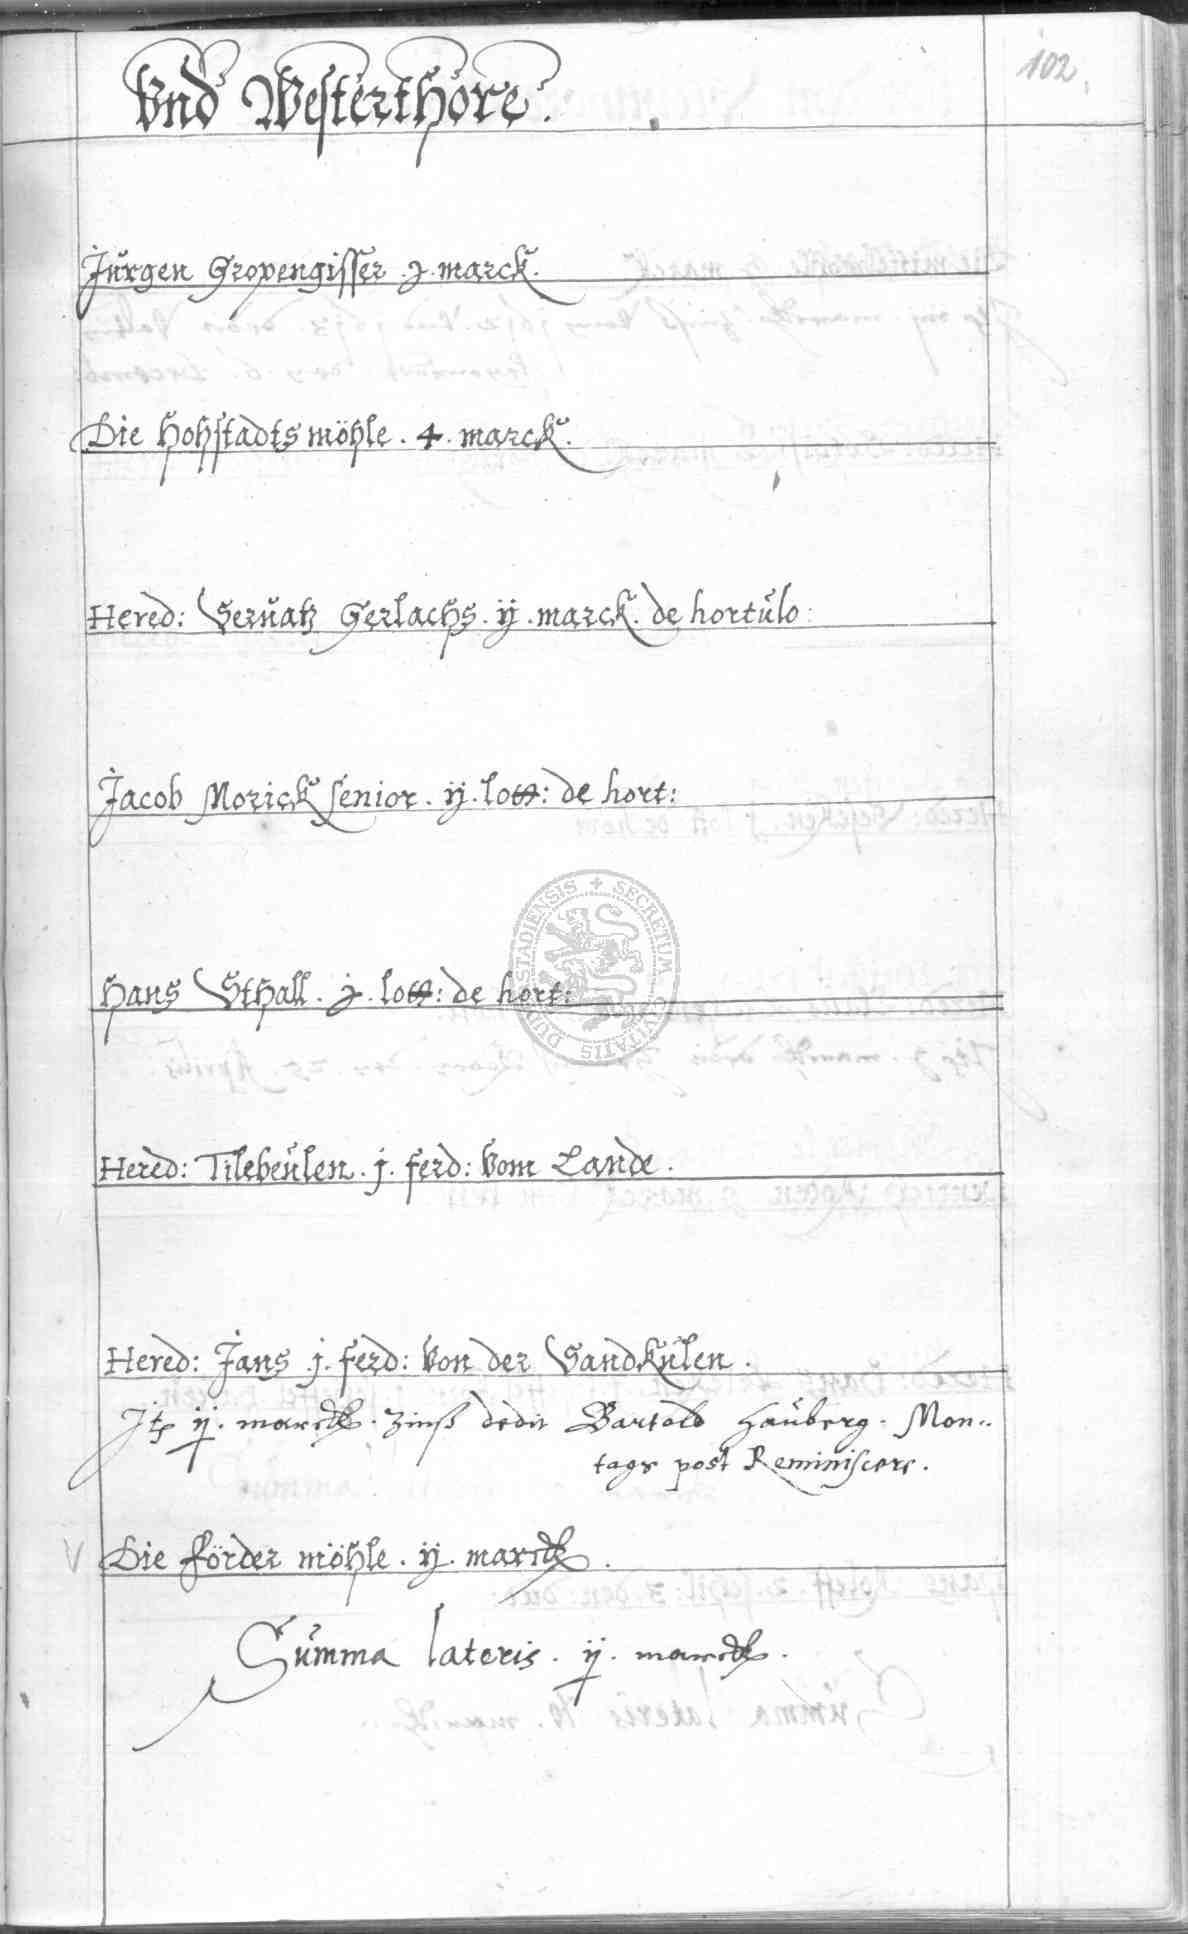 102.
Vnd Westerthore.
Jürgen Gropengisser .j. marck.
Die Hohstadtsmöhle . 4 . marck.
Hered: Seruatz Gerlachs . ij . marck. de hortulo:
Jacob Morick senior . ij . lott: de hort:
Hans Sthall . j . lott: de hort:
Hered: Tilebeulen . j . ferd: vom Lande .
Hered: Jans . j . ferd: von der Sandkulen .
Jts ij . marck . Zinß dedit Bartold Hauberg . Mon..
tags post Reminiscere .
V Die förder möhle . ij . marck .
Summa lateris . ij . marck .
SECRETUM CIVITATIS DUDERSTADIENSIS